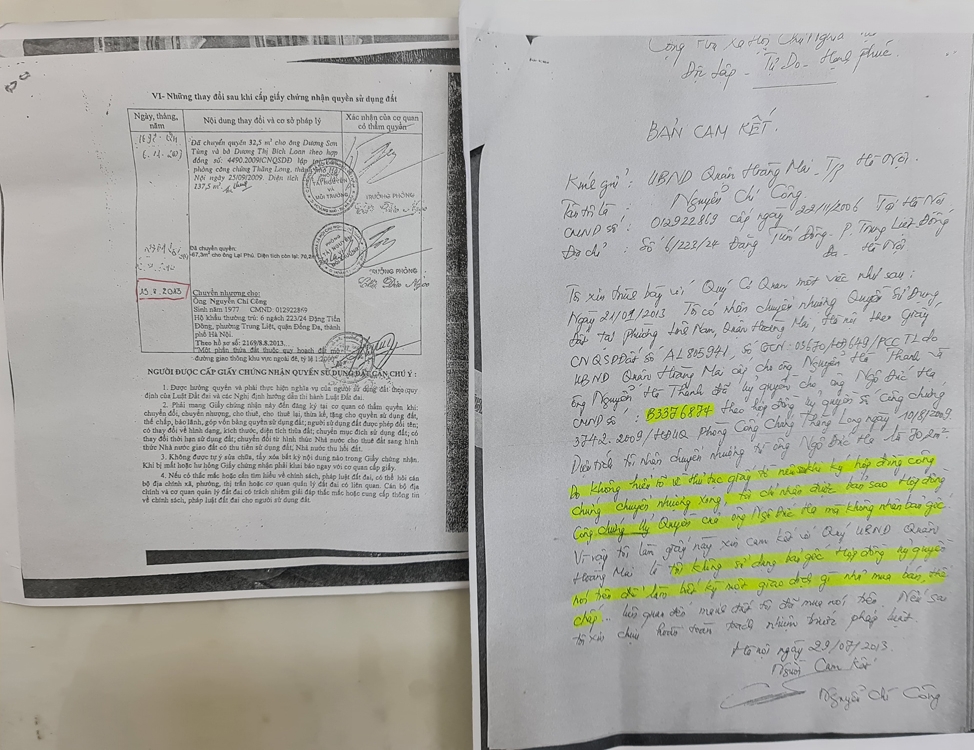 VI- Những thay đổi sau khi cấp giấy chứng nhận quyền sử dụng đất
Ngày, tháng, năm
Nội dung thay đổi và cơ sở pháp lý
Xác nhận của cơ quan có thẩm quyền
Đã chuyển quyền 32,5 m² cho ông Dương Sơn
Tùng và bà Dương Thị Bích Loan theo hợp
đồng số: 4490.2009/CNQSDĐ lập tại
phòng công chứng Thăng Long, thành phố Hà
Nội ngày 25/09/2009. Diện tích
137,5 m²
TRƯỞNG PHÒNG
Đã chuyển quyền:
67,3m² cho ông Lại Phú. Diện tích còn lại: 70,2
TRƯỞNG PHÒNG
Chuyển nhượng cho:
Ông: Nguyễn Chí Công
Sinh năm 1977 CMND: 012922869
Hộ khẩu thường trú: 6 ngách 223/24 Đặng Tiến
Đông, phường Trung Liệt, quận Đống Đa, thành
phố Hà Nội.
Theo hồ sơ số: 2169/8.8.2013.
"Một phần thửa đất thuộc quy hoạch
đường giao thông khu vực ngoài đê, tỷ lệ 1:2000"
NGƯỜI ĐƯỢC CẤP GIẤY CHỨNG NHẬN QUYỀN SỬ DỤNG ĐẤT CẦN CHÚ Ý :
1. Được hưởng quyền và phải thực hiện nghĩa vụ của người sử dụng đất theo quy
định của Luật Đất đai và các Nghị định hướng dẫn thi hành Luật Đất đai.
2. Phải mang Giấy chứng nhận này đến đăng ký tại cơ quan có thẩm quyền khi:
chuyển đổi, chuyển nhượng, cho thuê, cho thuê lại, thừa kế, tặng cho quyền sử dụng đất,
thế chấp, bảo lãnh, góp vốn bằng quyền sử dụng đất; người sử dụng đất được phép đổi tên;
có thay đổi về hình dạng, kích thước, diện tích thửa đất; chuyển mục đích sử dụng đất; có
thay đổi thời hạn sử dụng đất; chuyển đổi từ hình thức Nhà nước cho thuê đất sang hình
thức Nhà nước giao đất có thu tiền sử dụng đất; Nhà nước thu hồi đất.
3. Không được tự ý sửa chữa, tẩy xóa bất kỳ nội dung nào trong Giấy chứng nhận.
Khi bị mất hoặc hư hỏng Giấy chứng nhận phải khai báo ngay với cơ quan cấp giấy.
4. Nếu có thắc mắc hoặc cần tìm hiểu về chính sách, pháp luật đất đai, có thể hỏi cán
bộ địa chính xã, phường, thị trấn hoặc cơ quan quản lý đất đai có liên quan. Cán bộ địa
chính và cơ quan quản lý đất đai có trách nhiệm giải đáp thắc mắc hoặc cung cấp thông tin
về chính sách, pháp luật đất đai cho người sử dụng đất.
Cộng Hòa Xã Hội Chủ Nghĩa
Độc Lập - Tự Do - Hạnh phúc.
BẢN CAM KẾT.
Kính gửi : UBND Quận Hoàng Mai - T/p Hà Nội.
Tên tôi là : Nguyễn Chí Công
CMND số : 012922869 cấp ngày 22/11/2006 Tại Hà Nội
Địa chỉ : Số 6/223/24 Đặng Tiến Đông - P. Trung Liệt - Đống
Đa - Hà Nội
Tôi xin trình bày với Quý Cơ Quan một việc như sau :
Ngày 21/09/2013 Tôi có nhận chuyển nhượng Quyền Sử Dụng
đất tại phường Lĩnh Nam Quận Hoàng Mai, Hà Nội theo Giấy
CNQSDĐất số AL805941, số
UBND Quận Hoàng Mai cấp cho ông Nguyễn Hà Thanh và
ông Nguyễn Hà Thanh đã ủy quyền cho ông Ngô Đức Hạ
CMND số : B3376874 theo hợp đồng ủy quyền số Công chứng
3742. 2009 / HĐUQ Phòng Công Chứng Thăng Long ngày 10/8/2009
Diện tích tôi nhận chuyển nhượng từ ông Ngô Đức Hạ là 70,2m².
Do không hiểu rõ về thủ tục giấy tờ nên sau khi ký hợp đồng công
chứng chuyển nhượng xong, tôi chỉ nhận được bản sao Hợp đồng
công chứng ủy Quyền của ông Ngô Đức Hạ mà không nhận bản gốc.
Vì vậy tôi làm giấy này xin cam kết với Quý UBND Quận
Hoàng Mai là tôi không sử dụng bản gốc Hợp đồng ủy quyền
nói trên để làm bất kỳ một giao dịch gì như mua bán, thế
chấp... liên quan đến mảnh đất tôi đã mua nói trên. Nếu sai
tôi xin chịu hoàn toàn trách nhiệm trước pháp luật.
Hà nội ngày 29/07/2013.
Người Cam Kết
Nguyễn Chí Công